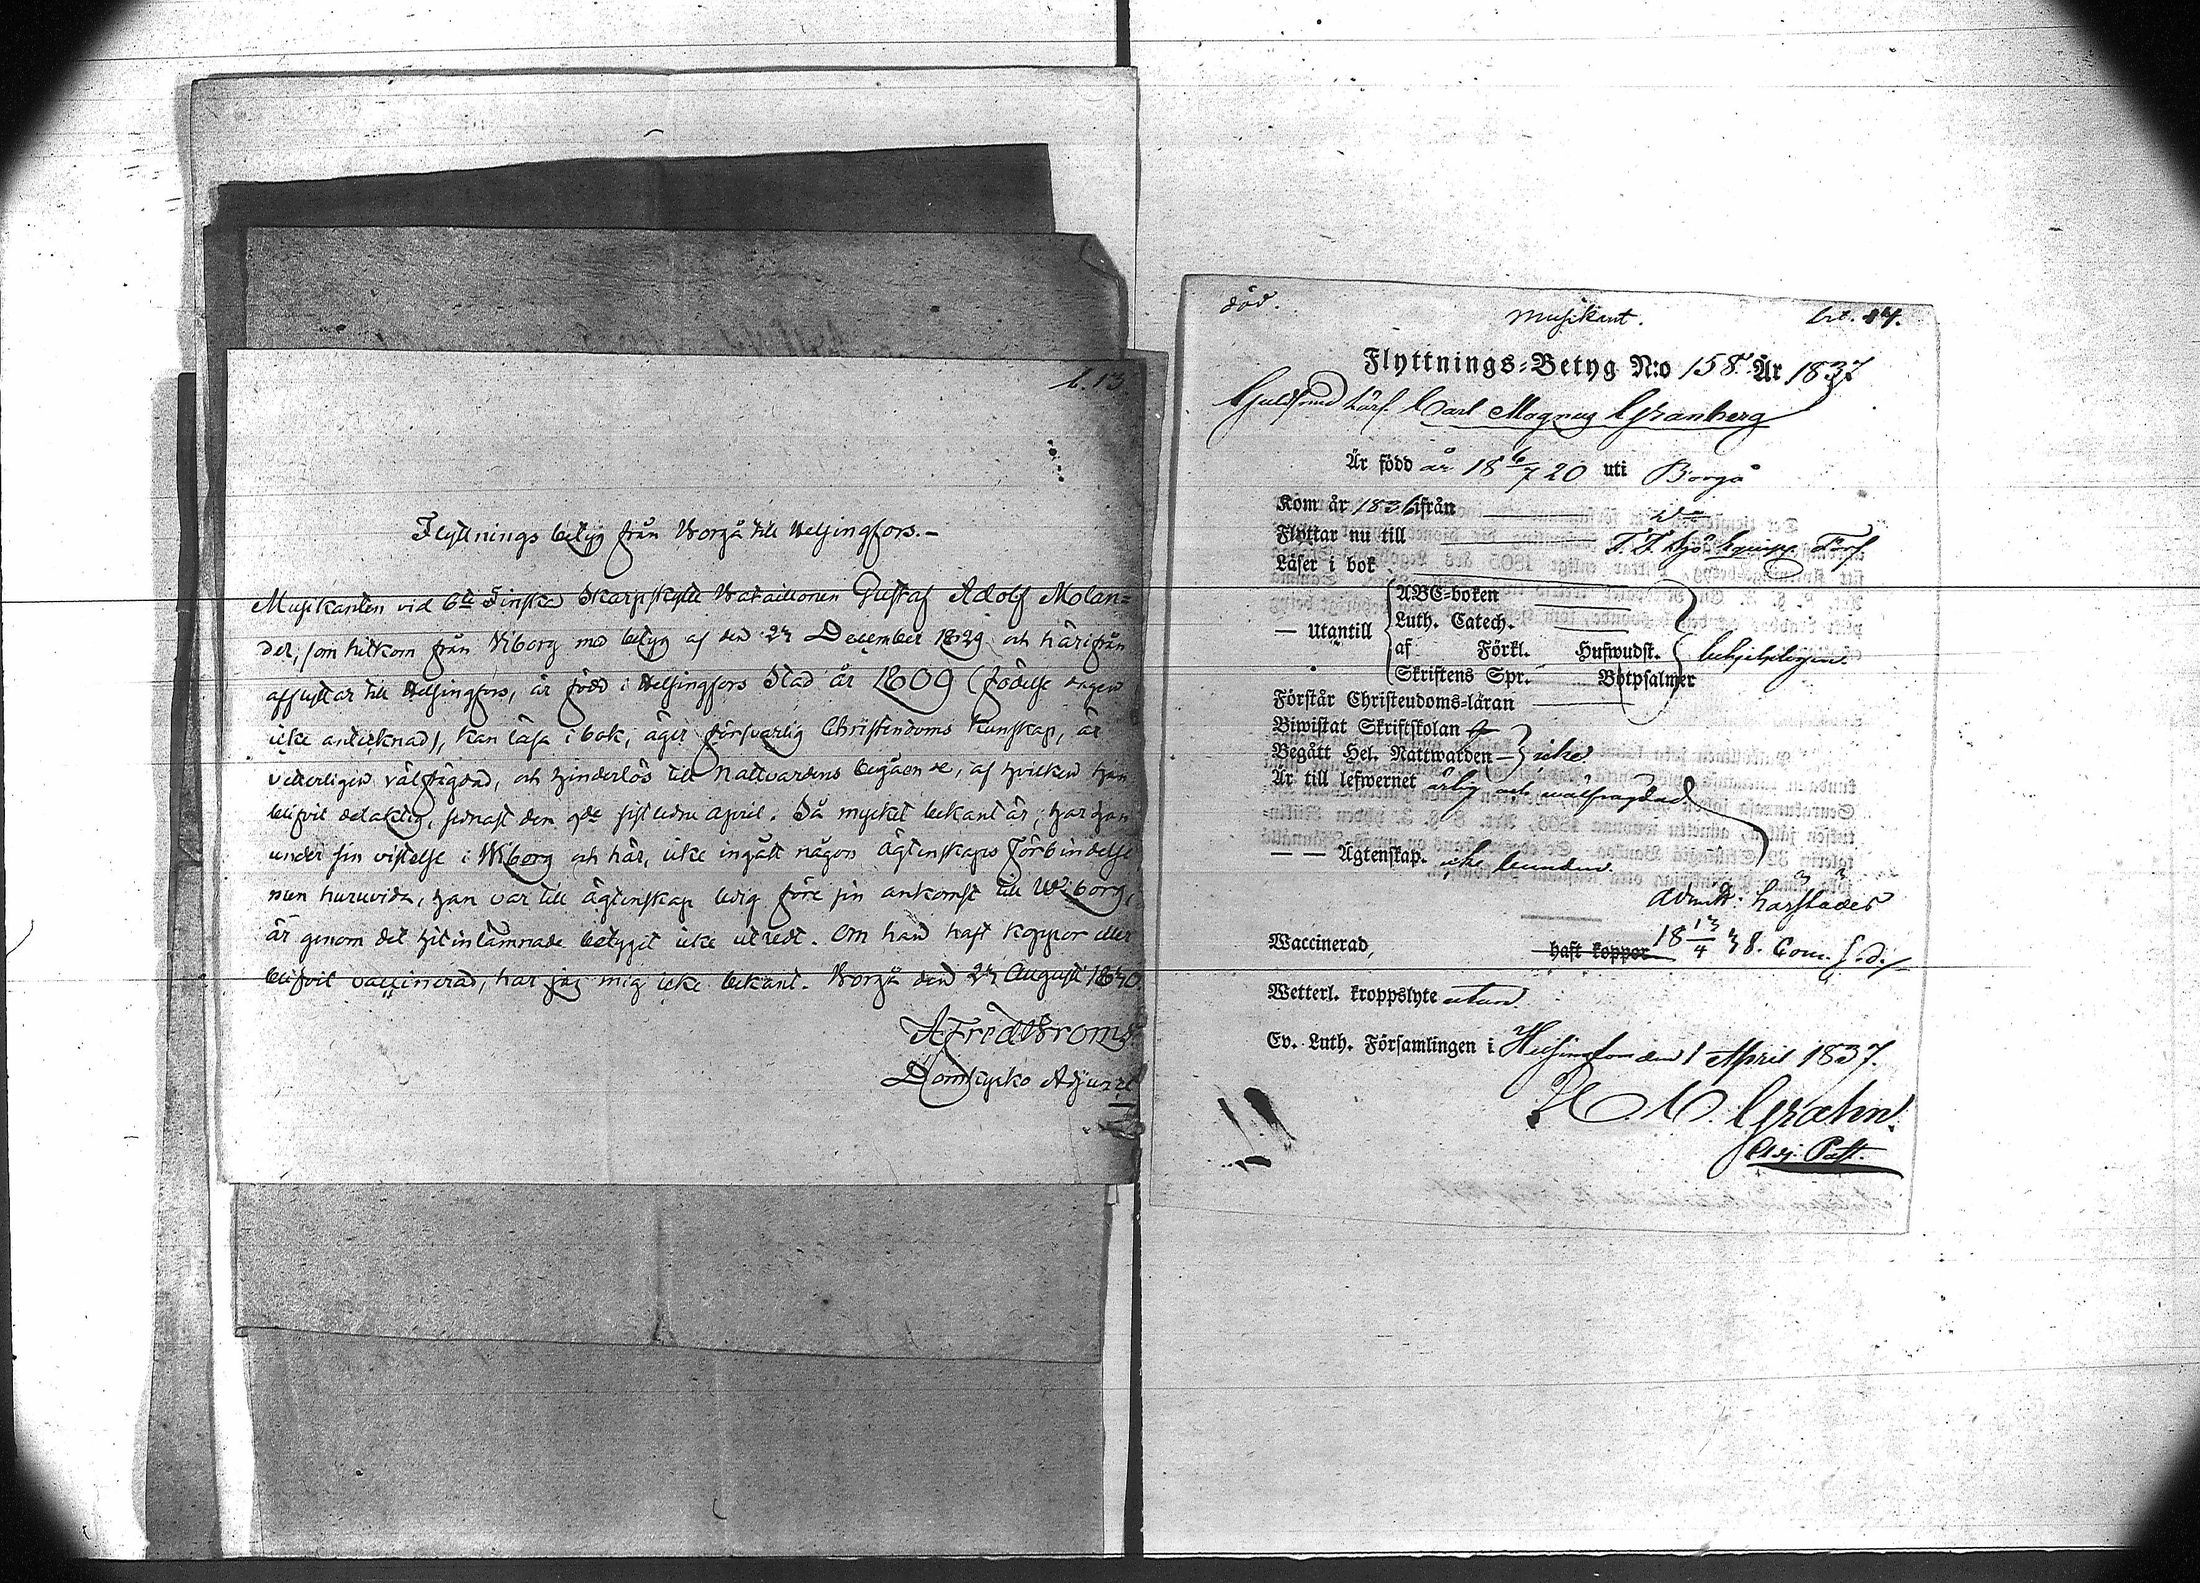 l. 13.
Flyttnings betyg från Borgå till Helsingfors.–
Musikanten vid 6te Finska Skarpskytte Bataillonen Gustaf Adolf Molan=
der, som hitkom från Wiborg med betyg af den 24 December 1829 och härifrån
afflyttar till Helsingfors, är född i Helsingfors Stad år 1809 (födelse dagen
icke antecknad), kan läsa i bok, äger försvarlig Christendoms kunskap, är
veterligen välfrägdad, och hinderlös till Nattvardens begående, af hvilken han
blifvit delaktig, sednast den 9de sistledne April. Så mycket bekant är, har han
under sin vistelse i Wiborg och här, icke ingått någon ägtenskaps förbindelse
men huruvida, han var till ägtenskap ledig före sin ankomst till Wiborg,
är genom det hit inlämnade betyget icke utredt. Om han haft koppor eller
blifvit vaccinerad, har jag mig icke bekant. Borgå den 24 Augusti 1830
Domkyrko Adjunct
död.
Musikant.
Litt. 44.
Flyttnings-Betyg N:o 158. År 1837
Guldsmed Lärl. Carl Magnus Granberg
Är född år 18 6/7 20 uti Borgå
Kom år 1836 från do
Flyttar nu till
Läser i bok
— Utantill
ABC-boken
Luth. Catech.
af Förkl. Hufwudst.
Skriftens Spr. Botpsalmer
behjelpligen.
Förstår Christendoms-läran
Biwistat Skriftskolan
Begått Hel. Nattwarden – icke
Är till lefwernet ärlig och wälfrägdad
— — Ägtenskap. icke bunden.
Admitt.
Waccinerad, haft koppor 18 13/4 38. Com. s. d.
Wetterl. kroppslyte utan
Ev. Luth. Församlingen i Helsingfors den 1 April 1837.
Græhn.
Adj. Past.